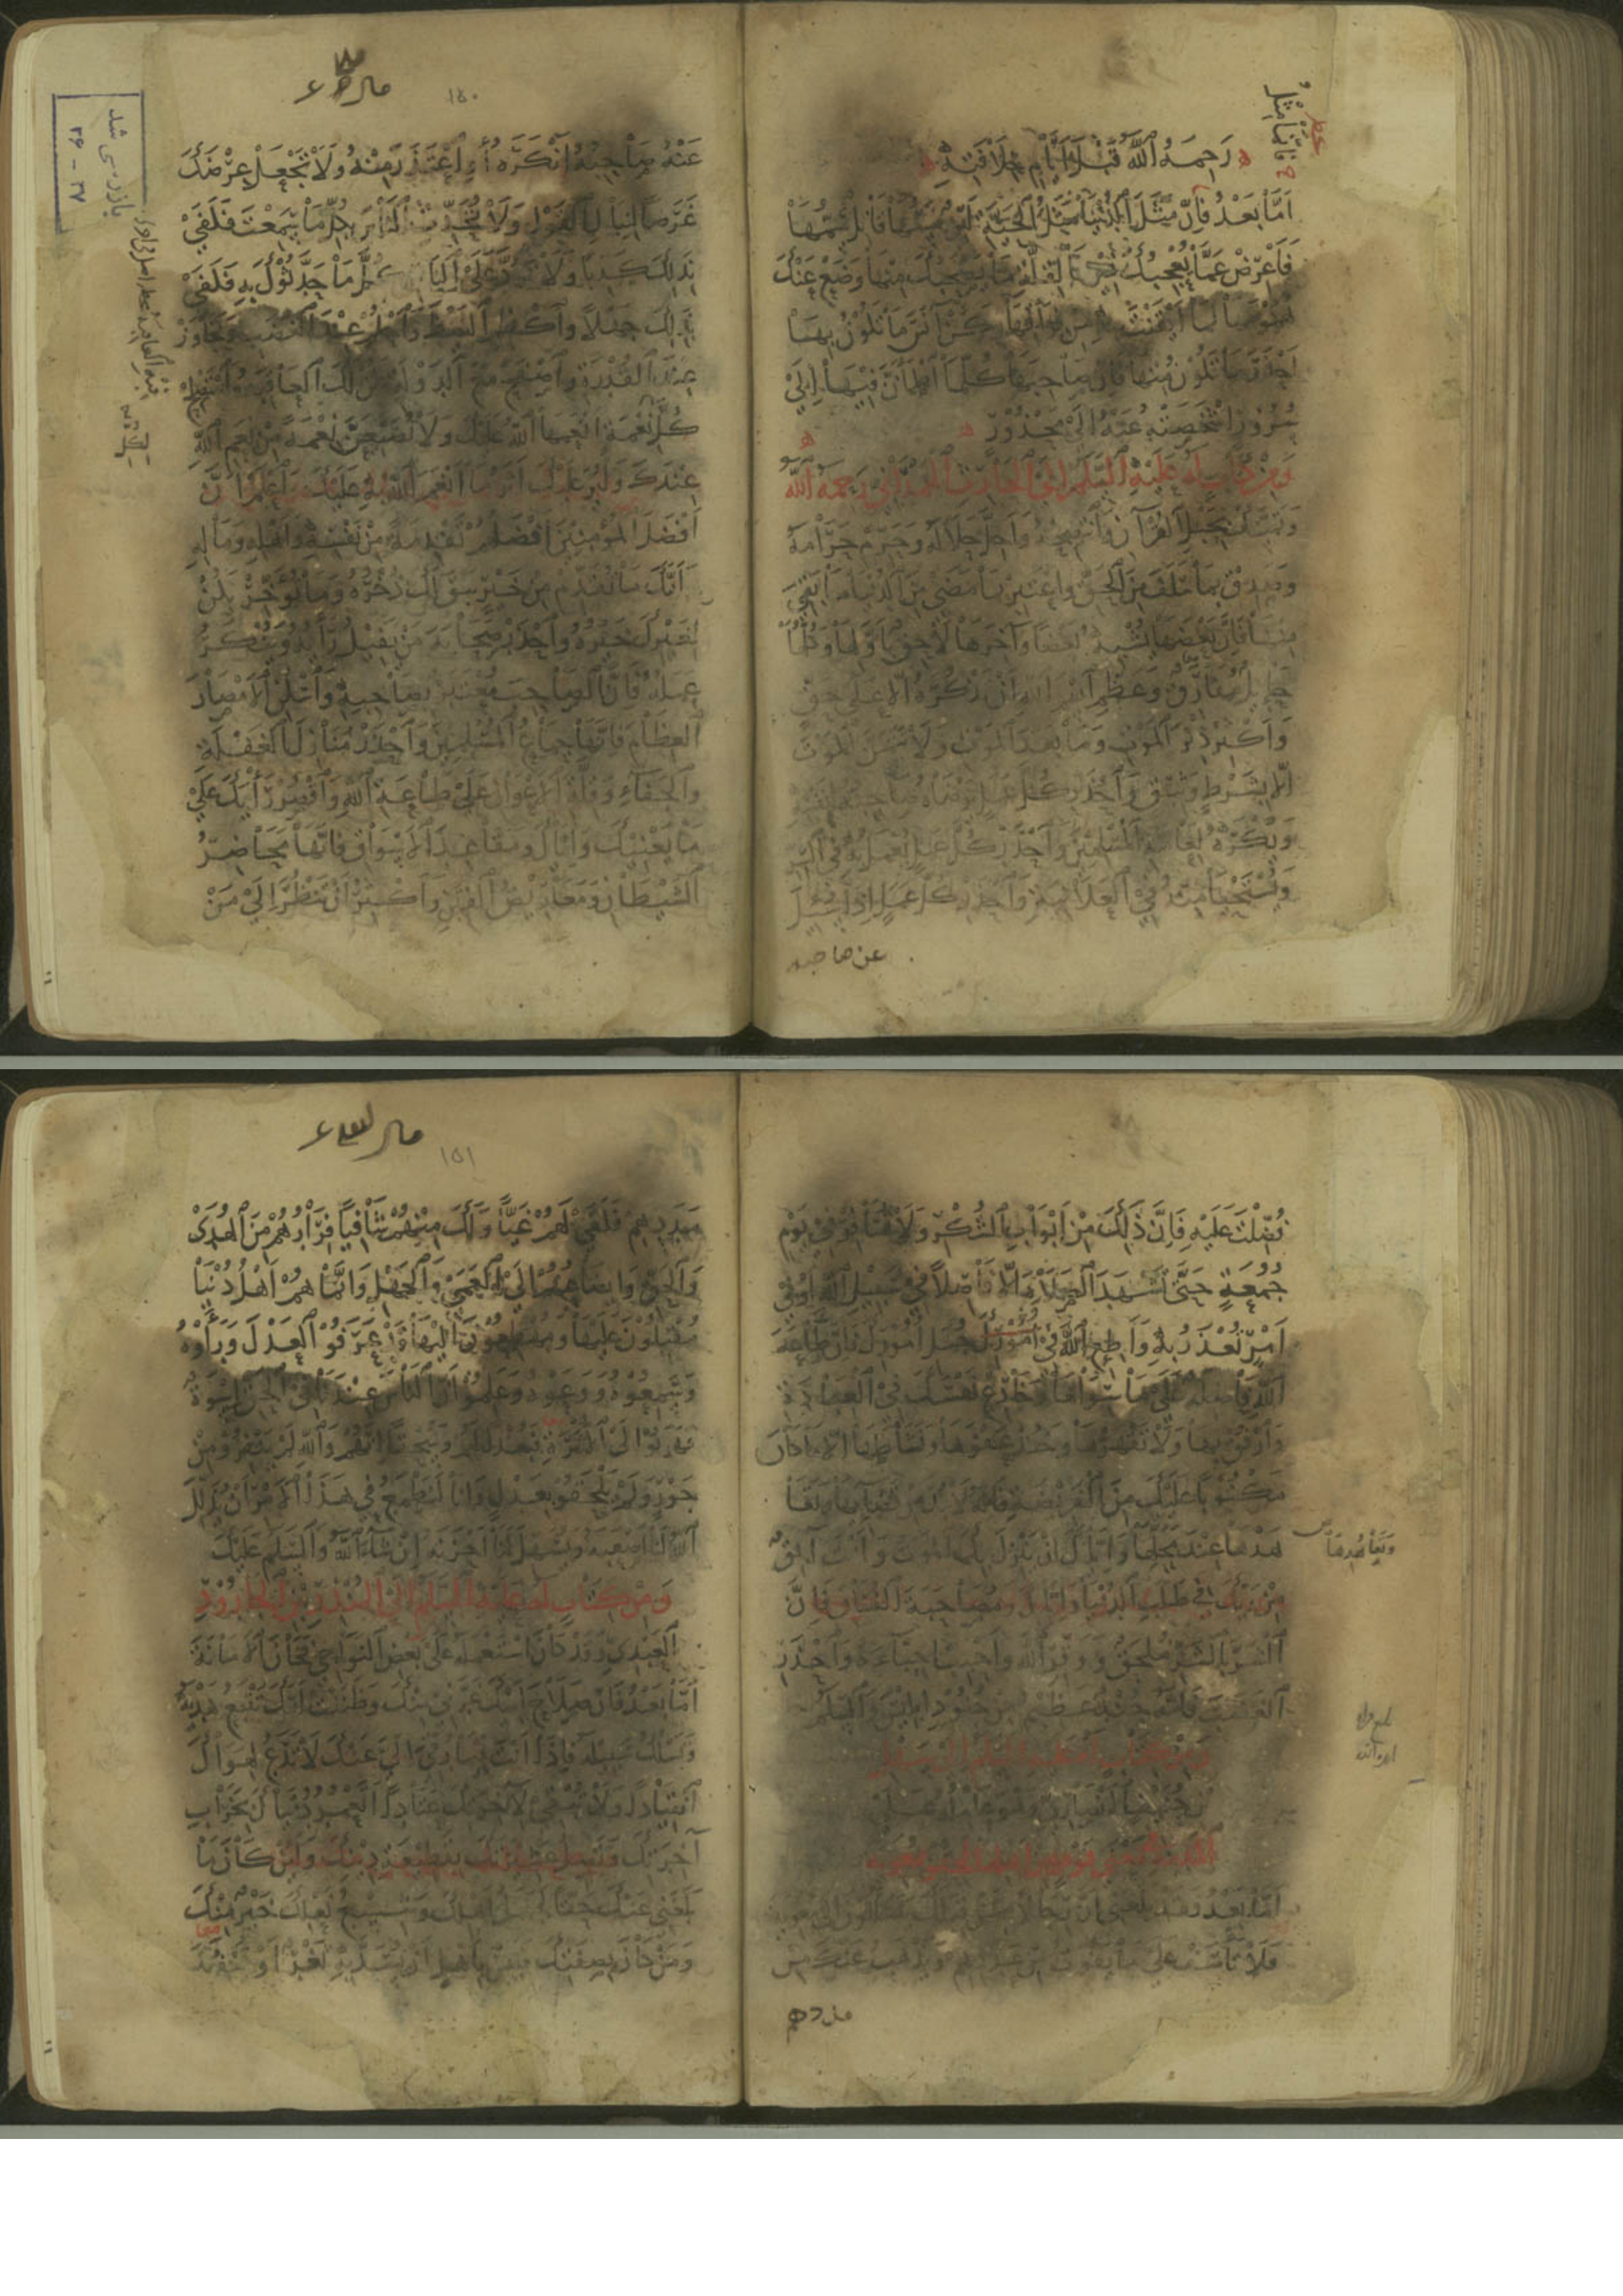 رَحِمَهُ ٱللَّهُ قَبْلَ أَيَّامِ خِلَافَتِهِ
أَمَّا بَعْدُ فَإِنَّ مَثَلَ ٱلدُّنْيَا مَثَلُ ٱلْحَيَّةِ لَيِّنٌ مَسُّهَا قَاتِلٌ سَمُّهَا
فَأَعْرِضْ عَمَّا يُعْجِبُكَ فِيهَا لِقِلَّةِ مَا يَصْحَبُكَ مِنْهَا وَضَعْ عَنْكَ
هُمُومَهَا لِمَا أَيْقَنْتَ مِنْ فِرَاقِهَا وَكُنْ آنَسَ مَا تَكُونُ بِهَا
أَحْذَرَ مَا تَكُونُ مِنْهَا فَإِنَّ صَاحِبَهَا كُلَّمَا ٱطْمَأَنَّ فِيهَا إِلَى
سُرُورٍ أَشْخَصَتْهُ عَنْهُ إِلَى مَحْذُورٍ
وَمِنْ كِتَابٍ لَهُ عَلَيْهِ ٱلسَّلَمُ إِلَى ٱلْحَارِثِ ٱلْهَمْدَانِي رَحِمَهُ ٱللَّهُ
وَتَمَسَّكْ بِحَبْلِ ٱلْقُرْآنِ وَٱنْتَصِحْهُ وَأَحِلَّ حَلَالَهُ وَحَرِّمْ حَرَامَهُ
وَصَدِّقْ بِمَا سَلَفَ مِنَ ٱلْحَقِّ وَٱعْتَبِرْ بِمَا مَضَى مِنَ ٱلدُّنْيَا مَا بَقِيَ
مِنْهَا فَإِنَّ بَعْضَهَا يُشْبِهُ بَعْضًا وَآخِرَهَا لَاحِقٌ بِأَوَّلِهَا وَكُلُّهَا
حَائِلٌ مُفَارِقٌ وَعَظِّمِ ٱسْمَ ٱللَّهِ أَنْ تَذْكُرَهُ إِلَّا عَلَى حَقٍّ
وَأَكْثِرْ ذِكْرَ ٱلْمَوْتِ وَمَا بَعْدَ ٱلْمَوْتِ وَلَا تَتَمَنَّ ٱلْمَوْتَ
إِلَّا بِشَرْطٍ وَثِيقٍ وَٱحْذَرْ كُلَّ عَمَلٍ يَرْضَاهُ صَاحِبُهُ لِنَفْسِهِ
وَيُكْرَهُ لِعَامَّةِ ٱلْمُسْلِمِينَ وَٱحْذَرْ كُلَّ عَمَلٍ يُعْمَلُ بِهِ فِي ٱلسِّرِّ
وَيُسْتَحْيَا مِنْهُ فِي ٱلْعَلَانِيَةِ وَٱحْذَرْ كُلَّ عَمَلٍ إِذَا سُئِلَ
عن صاحبه
١٥٠
عَنْهُ صَاحِبُهُ أَنْكَرَهُ أَوِ ٱعْتَذَرَ مِنْهُ وَلَا تَجْعَلْ عِرْضَكَ
غَرَضًا لِنِبَالِ ٱلْقَوْلِ وَلَا تُحَدِّثِ ٱلنَّاسَ بِكُلِّ مَا سَمِعْتَ فَكَفَى
بِذَلِكَ كَذِبًا وَلَا تَرُدَّ عَلَى ٱلنَّاسِ كُلَّ مَا حَدَّثُوكَ بِهِ فَكَفَى
بِذَلِكَ جَهْلًا وَٱكْظِمِ ٱلْغَيْظَ وَٱحْلُمْ عِنْدَ ٱلْغَضَبِ وَتَجَاوَزْ
عِنْدَ ٱلْقُدْرَةِ وَٱصْفَحْ مَعَ ٱلدَّوْلَةِ تَكُنْ لَكَ ٱلْعَاقِبَةُ وَٱسْتَصْلِحْ
كُلَّ نِعْمَةٍ أَنْعَمَهَا ٱللَّهُ عَلَيْكَ وَلَا تُضَيِّعَنَّ نِعْمَةً مِنْ نِعَمِ ٱللَّهِ
عِنْدَكَ وَلْيُرَ عَلَيْكَ أَثَرُ مَا أَنْعَمَ ٱللَّهُ بِهِ عَلَيْكَ وَٱعْلَمْ أَنَّ
أَفْضَلَ ٱلْمُؤْمِنِينَ أَفْضَلُهُمْ تَقْدِمَةً مِنْ نَفْسِهِ وَأَهْلِهِ وَمَالِهِ
وَأَنَّكَ مَا تُقَدِّمْ مِنْ خَيْرٍ يَبْقَ لَكَ ذُخْرُهُ وَمَا تُؤَخِّرْ يَكُنْ
لِغَيْرِكَ خَيْرُهُ وَٱحْذَرْ صَحَابَةَ مَنْ يَفِيلُ رَأْيُهُ وَيُنْكَرُ
عَمَلُهُ فَإِنَّ ٱلصَّاحِبَ مُعْتَبَرٌ بِصَاحِبِهِ وَٱسْكُنِ ٱلْأَمْصَارَ
ٱلْعِظَامَ فَإِنَّهَا جِمَاعُ ٱلْمُسْلِمِينَ وَٱحْذَرْ مَنَازِلَ ٱلْغَفْلَةِ
وَٱلْجَفَاءِ وَقِلَّةَ ٱلْأَعْوَانِ عَلَى طَاعَةِ ٱللَّهِ وَٱقْصُرْ رَأْيَكَ عَلَى
مَا يَعْنِيكَ وَإِيَّاكَ وَمَقَاعِدَ ٱلْأَسْوَاقِ فَإِنَّهَا مَحَاضِرُ
ٱلشَّيْطَانِ وَمَعَارِيضُ ٱلْفِتَنِ وَأَكْثِرْ أَنْ تَنْظُرَ إِلَى مَنْ
بازرسی شد
٣۶ - ٣٧
فُضِّلْتَ عَلَيْهِ فَإِنَّ ذَلِكَ مِنْ أَبْوَابِ ٱلشُّكْرِ وَلَا تُسَافِرْ فِي يَوْمِ
جُمُعَةٍ حَتَّى تَشْهَدَ ٱلصَّلَاةَ إِلَّا فَاصِلًا فِي سَبِيلِ ٱللَّهِ أَوْ فِي
أَمْرٍ تُعْذَرُ بِهِ وَأَطِعِ ٱللَّهَ فِي جُمَلِ أُمُورِكَ فَإِنَّ طَاعَةَ
ٱللَّهِ فَاضِلَةٌ عَلَى مَا سِوَاهَا وَخَادِعْ نَفْسَكَ فِي ٱلْعِبَادَةِ
وَٱرْفُقْ بِهَا وَلَا تَقْهَرْهَا وَخُذْ عَفْوَهَا وَنَشَاطَهَا إِلَّا مَا كَانَ
مَكْتُوبًا عَلَيْكَ مِنَ ٱلْفَرِيضَةِ فَإِنَّهُ لَا بُدَّ مِنْ قَضَائِهَا وَتَعَا
هُدِهَا عِنْدَ مَحَلِّهَا وَإِيَّاكَ أَنْ يَنْزِلَ بِكَ ٱلْمَوْتُ وَأَنْتَ آبِقٌ
مِنْ رَبِّكَ فِي طَلَبِ ٱلدُّنْيَا وَإِيَّاكَ وَمُصَاحَبَةَ ٱلْفُسَّاقِ فَإِنَّ
ٱلشَّرَّ بِٱلشَّرِّ مُلْحَقٌ وَوَقِّرِ ٱللَّهَ وَأَحْبِبْ أَحِبَّاءَهُ وَٱحْذَرِ
ٱلْغَضَبَ فَإِنَّهُ جُنْدٌ عَظِيمٌ مِنْ جُنُودِ إِبْلِيسَ وَٱلسَّلَمُ
وَمِنْ كِتَابٍ لَهُ عَلَيْهِ ٱلسَّلَمُ إِلَى سَهْلِ
بْنِ حُنَيْفٍ ٱلْأَنْصَارِيِّ وَهُوَ عَامِلُهُ عَلَى
أَمَّا بَعْدُ فَقَدْ بَلَغَنِي أَنَّ رِجَالًا مِمَّنْ قِبَلَكَ يَتَسَلَّلُونَ إِلَى مُعَوِيَةَ
فَلَا تَأْسَفْ عَلَى مَا يَفُوتُكَ مِنْ عَدَدِهِمْ وَيَذْهَبُ عَنْكَ مِنْ
مددهم
وَتَعَاهُدِهَا
١٥١
مَدَدِهِمْ فَكَفَى لَهُمْ غَيًّا وَلَكَ مِنْهُمْ شَافِيًا فِرَارُهُمْ مِنَ ٱلْهُدَى
وَٱلْحَقِّ وَإِيضَاعُهُمْ إِلَى ٱلْعَمَى وَٱلْجَهْلِ وَإِنَّمَا هُمْ أَهْلُ دُنْيَا
مُقْبِلُونَ عَلَيْهَا وَمُهْطِعُونَ إِلَيْهَا قَدْ عَرَفُوا ٱلْعَدْلَ وَرَأَوْهُ
وَسَمِعُوهُ وَوَعَوْهُ وَعَلِمُوا أَنَّ ٱلنَّاسَ عِنْدَنَا فِي ٱلْحَقِّ أُسْوَةٌ
فَهَرَبُوا إِلَى ٱلْأَثَرَةِ فَبُعْدًا لَهُمْ وَسُحْقًا إِنَّهُمْ وَٱللَّهِ لَمْ يَنْفِرُوا مِنْ
جَوْرٍ وَلَمْ يَلْحَقُوا بِعَدْلٍ وَإِنَّا لَنَطْمَعُ فِي هَذَا ٱلْأَمْرِ أَنْ يُذَلِّلَ
ٱللَّهُ لَنَا أَصْعَبَهُ وَيُسَهِّلَ لَنَا أَحْزَنَهُ إِنْ شَاءَ ٱللَّهُ وَٱلسَّلَمُ عَلَيْكَ
وَمِنْ كِتَابٍ لَهُ عَلَيْهِ ٱلسَّلَمُ إِلَى ٱلْمُنْذِرِ بْنِ ٱلْجَارُودِ
ٱلْعَبْدِيِّ وَقَدْ كَانَ ٱسْتَعْمَلَهُ عَلَى بَعْضِ ٱلنَّوَاحِي فَخَانَ ٱلْأَمَانَةَ
أَمَّا بَعْدُ فَإِنَّ صَلَاحَ أَبِيكَ غَرَّنِي مِنْكَ وَظَنَنْتُ أَنَّكَ تَتَّبِعُ هَدْيَهُ
وَتَسْلُكُ سَبِيلَهُ فَإِذَا أَنْتَ فِيمَا رُقِّيَ إِلَيَّ عَنْكَ لَا تَدَعُ لِهَوَاكَ
ٱنْقِيَادًا وَلَا تُبْقِي لِآخِرَتِكَ عَتَادًا أَتَعْمُرُ دُنْيَاكَ بِخَرَابِ
آخِرَتِكَ وَتَصِلُ عَشِيرَتَكَ بِقَطِيعَةِ دِينِكَ وَلَئِنْ كَانَ مَا
بَلَغَنِي عَنْكَ حَقًّا لَجَمَلُ أَهْلِكَ وَشِسْعُ نَعْلِكَ خَيْرٌ مِنْكَ
وَمَنْ كَانَ بِصِفَتِكَ فَلَيْسَ بِأَهْلٍ أَنْ يُسَدَّ بِهِ ثَغْرٌ أَوْ يُنْفَذَ